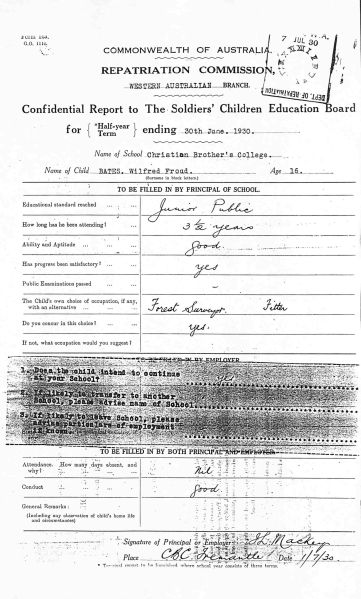 COMMONWEALTH OF AUSTRALIA.
REPATRIATION COMMISSION,
WESTERN AUSTRALIAN BRANCH.
7 JUL 30
DEPT. OF REPATRIATION
Confidential Report to The Soldiers' Children Education Board
for { *Half-year Term } ending 30th June, 1930.
Name of School Christian Brother's College.
Name of Child BATES, Wilfred Froud. Age 16.
(Surname in block letters)
TO BE FILLED IN BY PRINCIPAL OF SCHOOL.
Educational standard reached Junior Public
How long has he been attending? 3½ years
Ability and Aptitude Good
Has progress been satisfactory? yes
Public Examinations passed –
The Child's own choice of occupation, if any, with an alternative Forest Surveyor. Fitter
Do you concur in this choice? yes.
If not, what occupation would you suggest?
TO BE FILLED IN BY EMPLOYER
1. Does the child intend to continue
at your School?
2. If likely to transfer to another
School, please advise name of School.
3. If likely to leave School, please
advise particulars of employment
if known.
TO BE FILLED IN BY BOTH PRINCIPAL AND EMPLOYER
Attendance. How many days absent, and why? Nil
Conduct Good.
General Remarks
(Including any observation of child's home life and circumstances)
Signature of Principal or Employer
Place CBC Fremantle Date 1/7/30